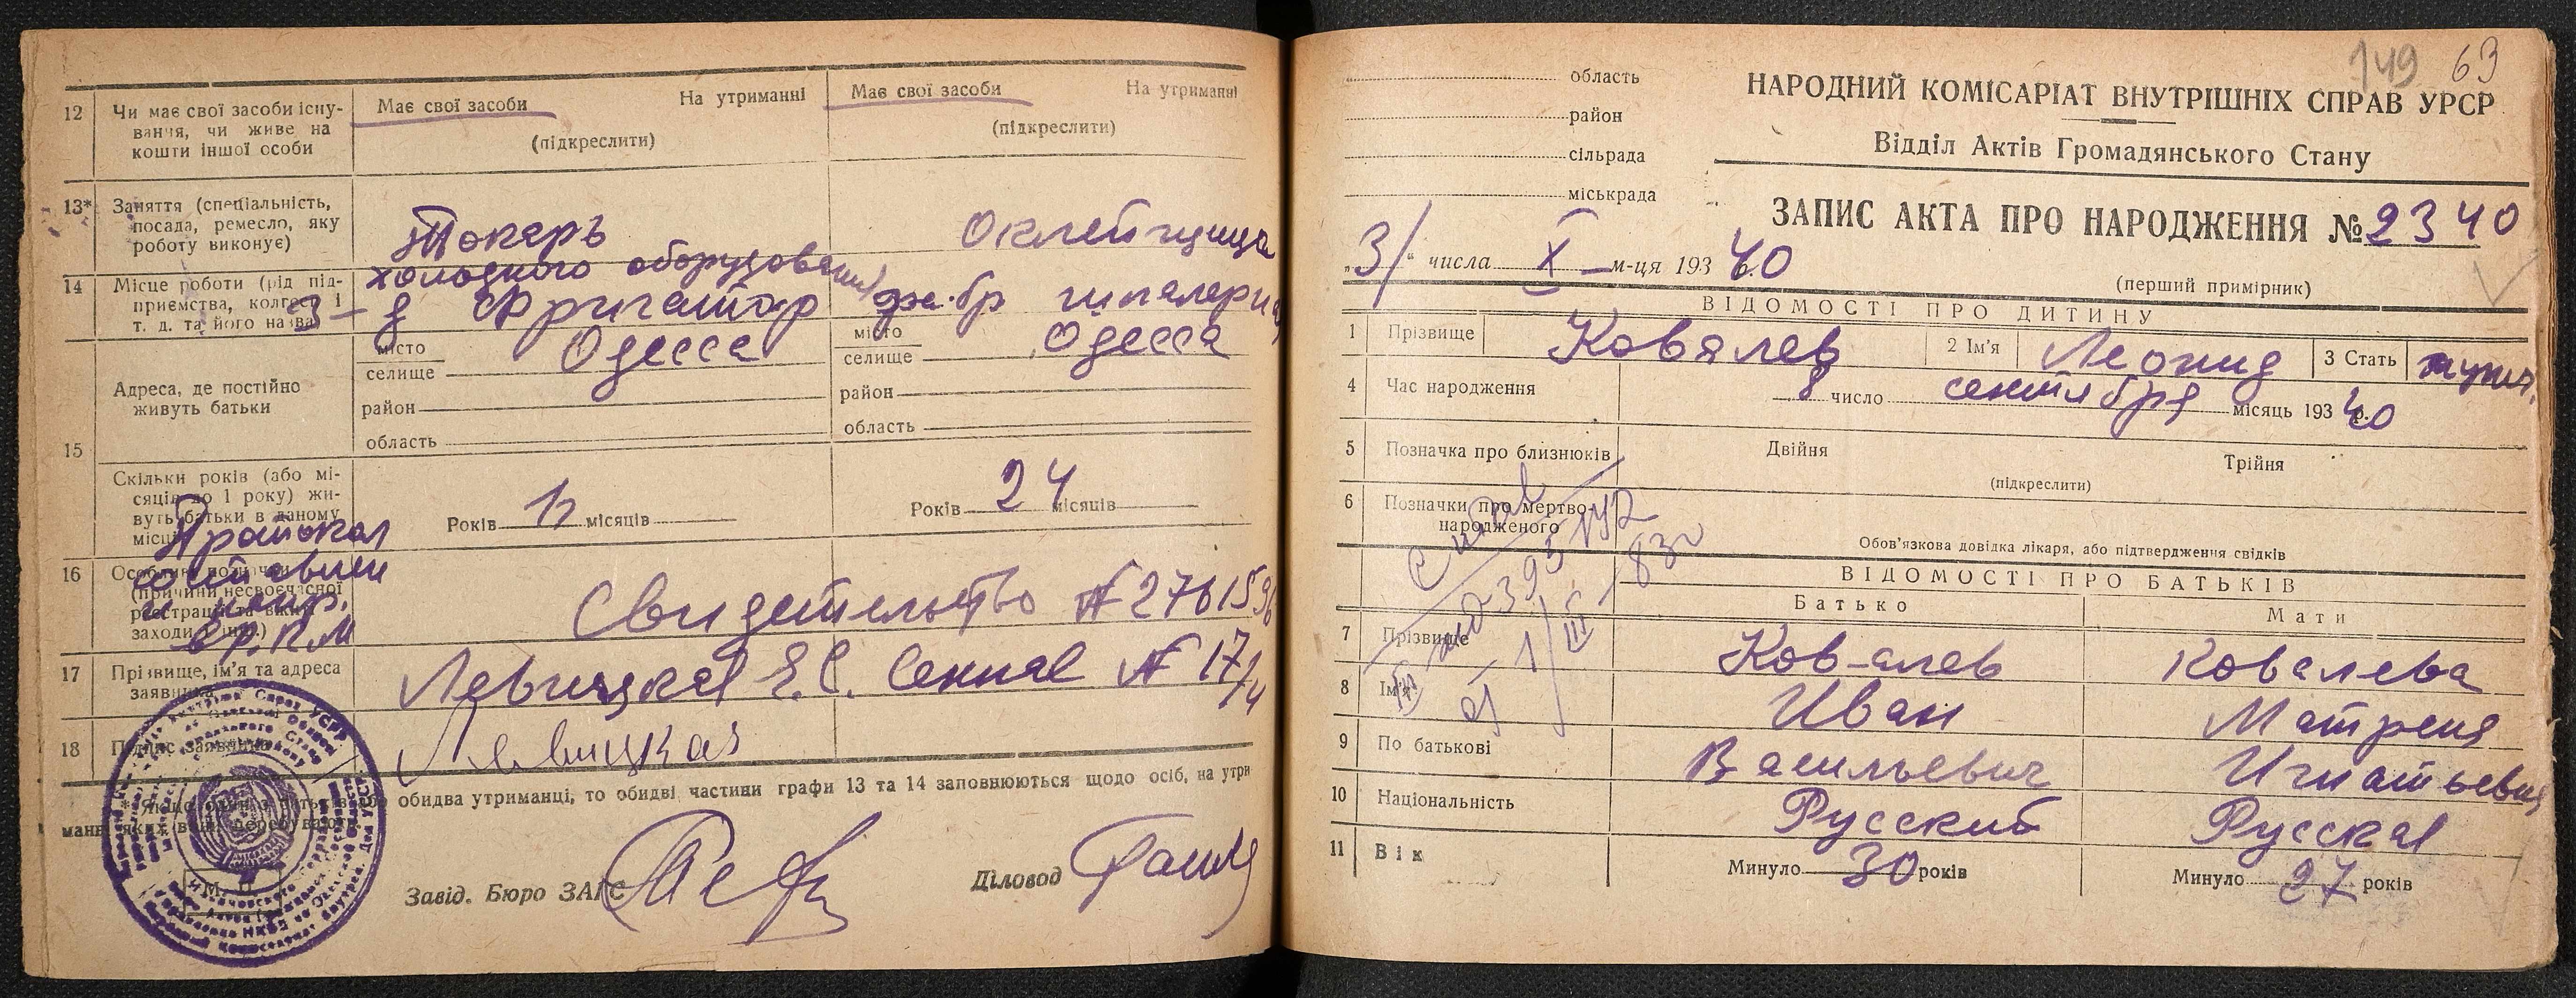 12 Чи має свої засоби існування, чи живе на кошти іншої особи
Має свої засоби На утриманні
(підкреслити)
Має свої засоби На утриманні
(підкреслити)
13* Заняття (спеціальність, посада, ремесло, яку роботу виконує)
Токарь
Оклейщица
14 Місце роботи (рід підприємства, колгосп і т. д. та його назва)
холодного оборудован
З-д Фригатор
фабр шпалерная
15 Адреса, де постійно живуть батьки
місто
селище Одесса
район
область
місто
селище Одесса
район
область
Скільки років (або місяців до 1 року) живуть батьки в даному місці
Років 11 місяців
Років 24 місяців
16 Особливі позначки (причини несвоєчасної реєстрації та вжиті заходи і інш.)
Протокол
составлен
и напр.
Свидетельство № 276159
17 Прізвище, ім'я та адреса заявника
Левицкая Е.С. Сенная № 17/4
18 Підпис заявника
Левицкая
* Якщо один з батьків або обидва утриманці, то обидві частини графи 13 та 14 заповнюються щодо осіб, на утри
манні яких вони перебувають.
М. П.
Завід. Бюро ЗАГС
Діловод
149 63
область
район
сільрада
міськрада
НАРОДНИЙ КОМІСАРІАТ ВНУТРІШНІХ СПРАВ УРСР
Відділ Актів Громадянського Стану
ЗАПИС АКТА ПРО НАРОДЖЕННЯ № 2340
„31“ числа X м-ця 193 40 р.
(перший примірник)
ВІДОМОСТІ ПРО ДИТИНУ
1 Прізвище Ковалев 2 Ім'я Леонид 3 Стать мужск.
4 Час народження 8 число сентября місяць 193 40 р.
5 Позначка про близнюків Двійня Трійня
(підкреслити)
6 Позначки про мертвонародженого
Обов'язкова довідка лікаря, або підтвердження свідків
ВІДОМОСТІ ПРО БАТЬКІВ
Батько Мати
7 Прізвище Ковалев Ковалева
8 Ім'я Иван Матрена
9 По батькові Васильевич Игнатьевна
10 Національність Русский Русская
11 Вік Минуло 30 років Минуло 27 років